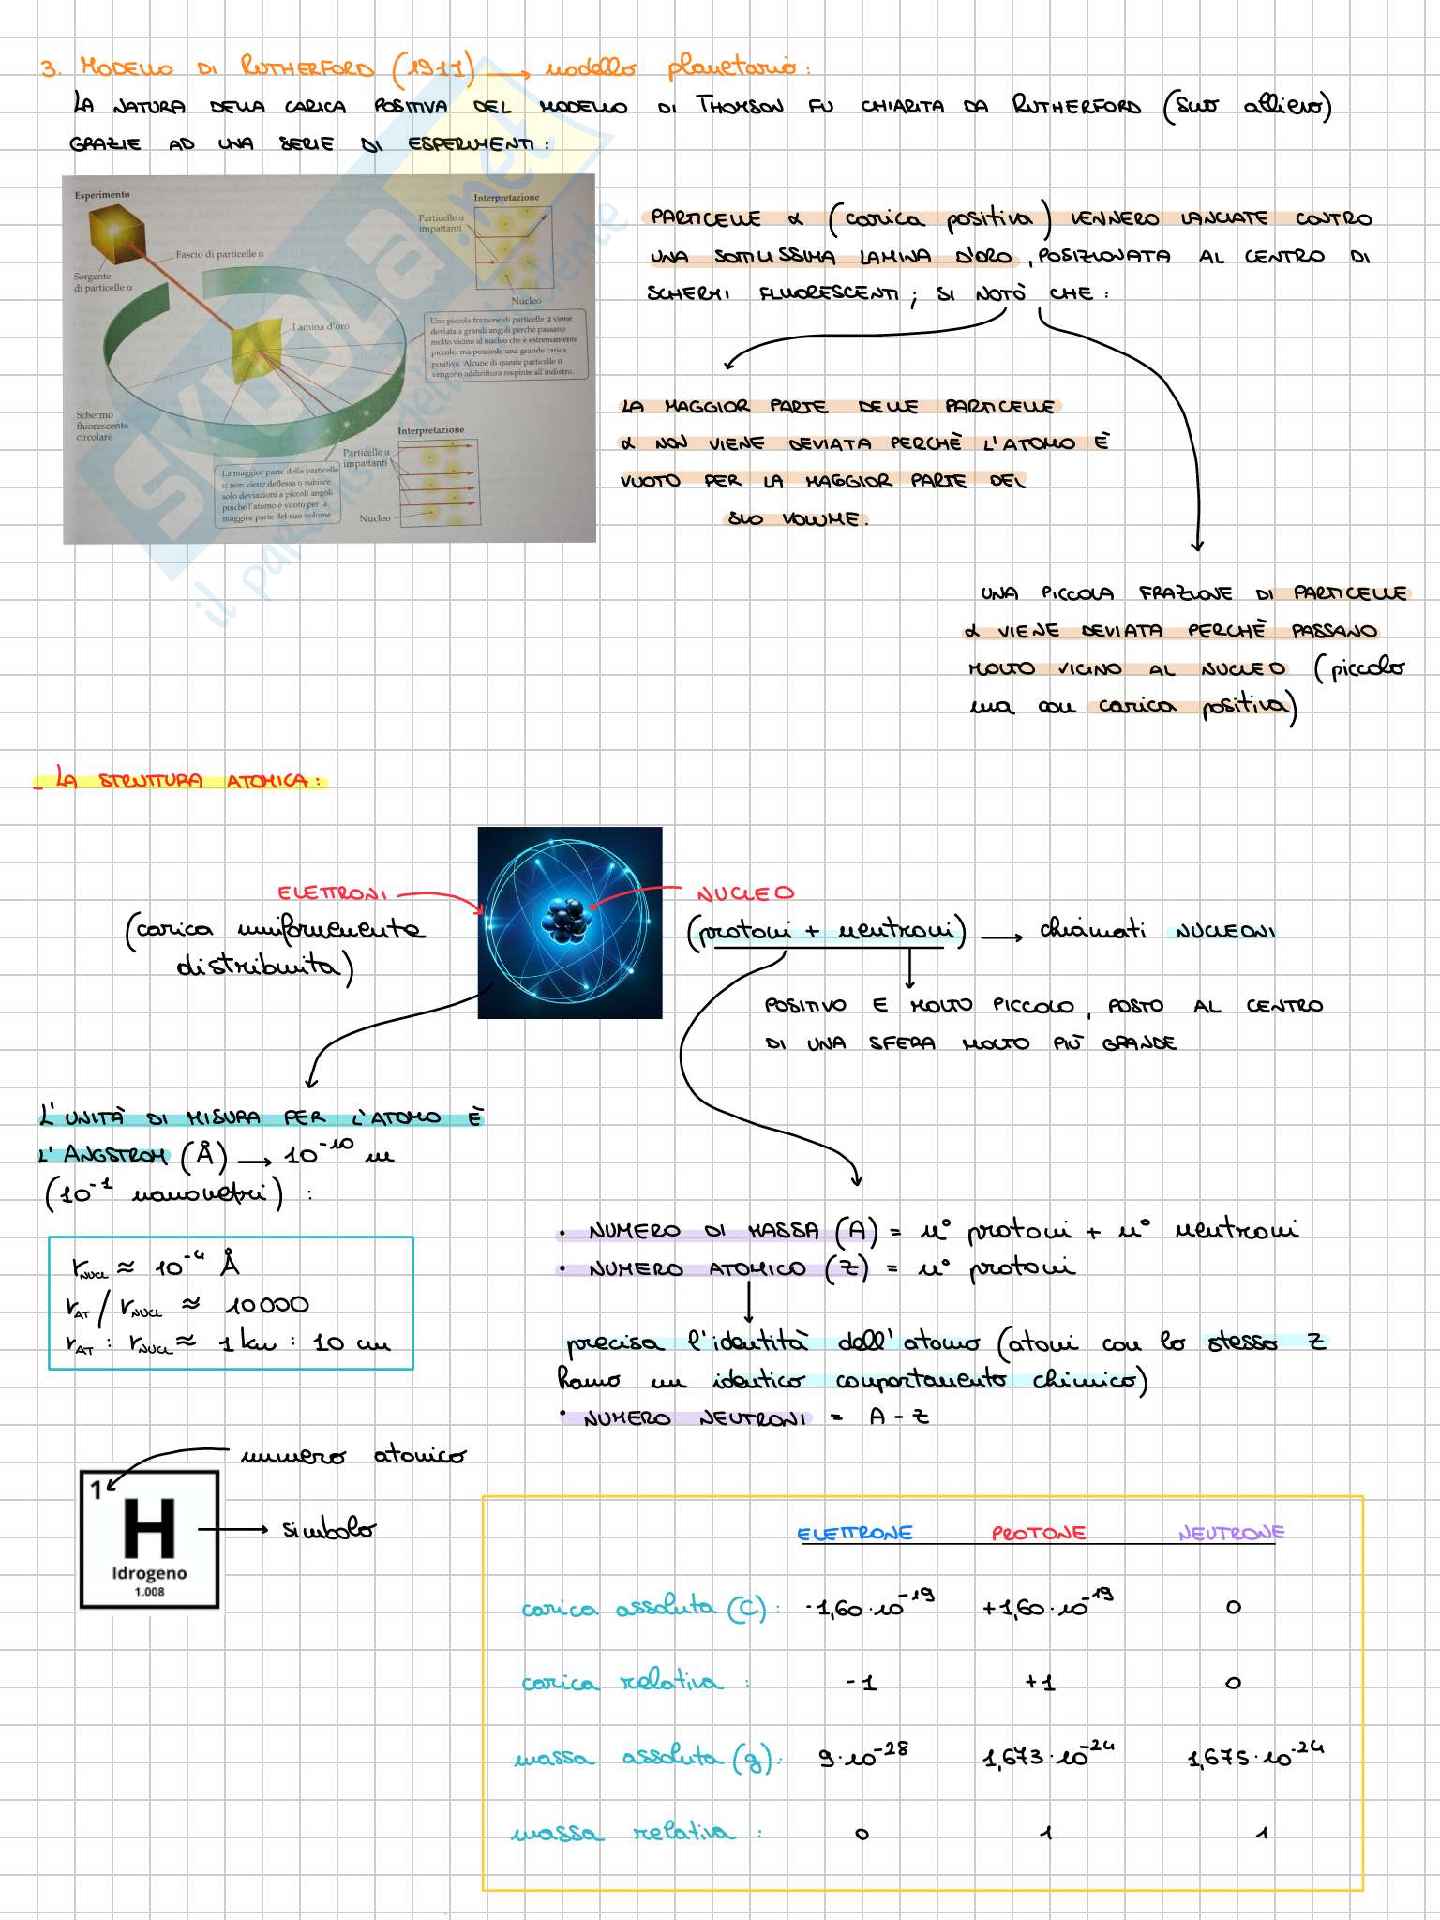 3. MODELLO DI RUTHERFORD (1911) → modello planetario:
LA NATURA DELLA CARICA POSITIVA DEL MODELLO DI THOMSON FU CHIARITA DA RUTHERFORD (suo allievo)
GRAZIE AD UNA SERIE DI ESPERIMENTI:
Esperimento
Sorgente
di particelle α
Fascio di particelle α
Lamina d'oro
Schermo
fluorescente
circolare
Interpretazione
Particelle α
impattanti
Nucleo
Una piccola frazione di particelle α viene
deviata a grandi angoli perché passano
molto vicine al nucleo che è estremamente
piccolo ma possiede una grande carica
positiva. Alcune di queste particelle α
vengono addirittura respinte all'indietro.
Interpretazione
Particelle α
impattanti
Nucleo
La maggior parte delle particelle
α non viene deflessa o subisce
solo deviazioni a piccoli angoli
poiché l'atomo è vuoto per la
maggior parte del suo volume
PARTICELLE α (carica positiva) VENNERO LANCIATE CONTRO
UNA SOTTILISSIMA LAMINA D'ORO, POSIZIONATA AL CENTRO DI
SCHERMI FLUORESCENTI; SI NOTÒ CHE:
LA MAGGIOR PARTE DELLE PARTICELLE
α NON VIENE DEVIATA PERCHÈ L'ATOMO È
VUOTO PER LA MAGGIOR PARTE DEL
SUO VOLUME.
UNA PICCOLA FRAZIONE DI PARTICELLE
α VIENE DEVIATA PERCHÈ PASSANO
MOLTO VICINO AL NUCLEO (piccolo
ma con carica positiva)
- LA STRUTTURA ATOMICA:
ELETTRONI
(carica uniformemente
distribuita)
NUCLEO
(protoni + neutroni) → chiamati NUCLEONI
POSITIVO E MOLTO PICCOLO, POSTO AL CENTRO
DI UNA SFERA MOLTO PIÙ GRANDE
L'UNITÀ DI MISURA PER L'ATOMO È
L'ANGSTROM (Å) → 10⁻¹⁰ m
(10⁻¹ nanometri):
r_NUCL ≈ 10⁻⁴ Å
r_AT / r_NUCL ≈ 10000
r_AT : r_NUCL ≈ 1 km : 10 cm
• NUMERO DI MASSA (A) = n° protoni + n° neutroni
• NUMERO ATOMICO (Z) = n° protoni
precisa l'identità dell'atomo (atomi con lo stesso Z
hanno un identico comportamento chimico)
• NUMERO NEUTRONI = A - Z
numero atomico
1
H
simbolo
Idrogeno
1.008
ELETTRONE PROTONE NEUTRONE
carica assoluta (C): -1,60·10⁻¹⁹ +1,60·10⁻¹⁹ 0
carica relativa: -1 +1 0
massa assoluta (g): 9·10⁻²⁸ 1,673·10⁻²⁴ 1,675·10⁻²⁴
massa relativa: 0 1 1